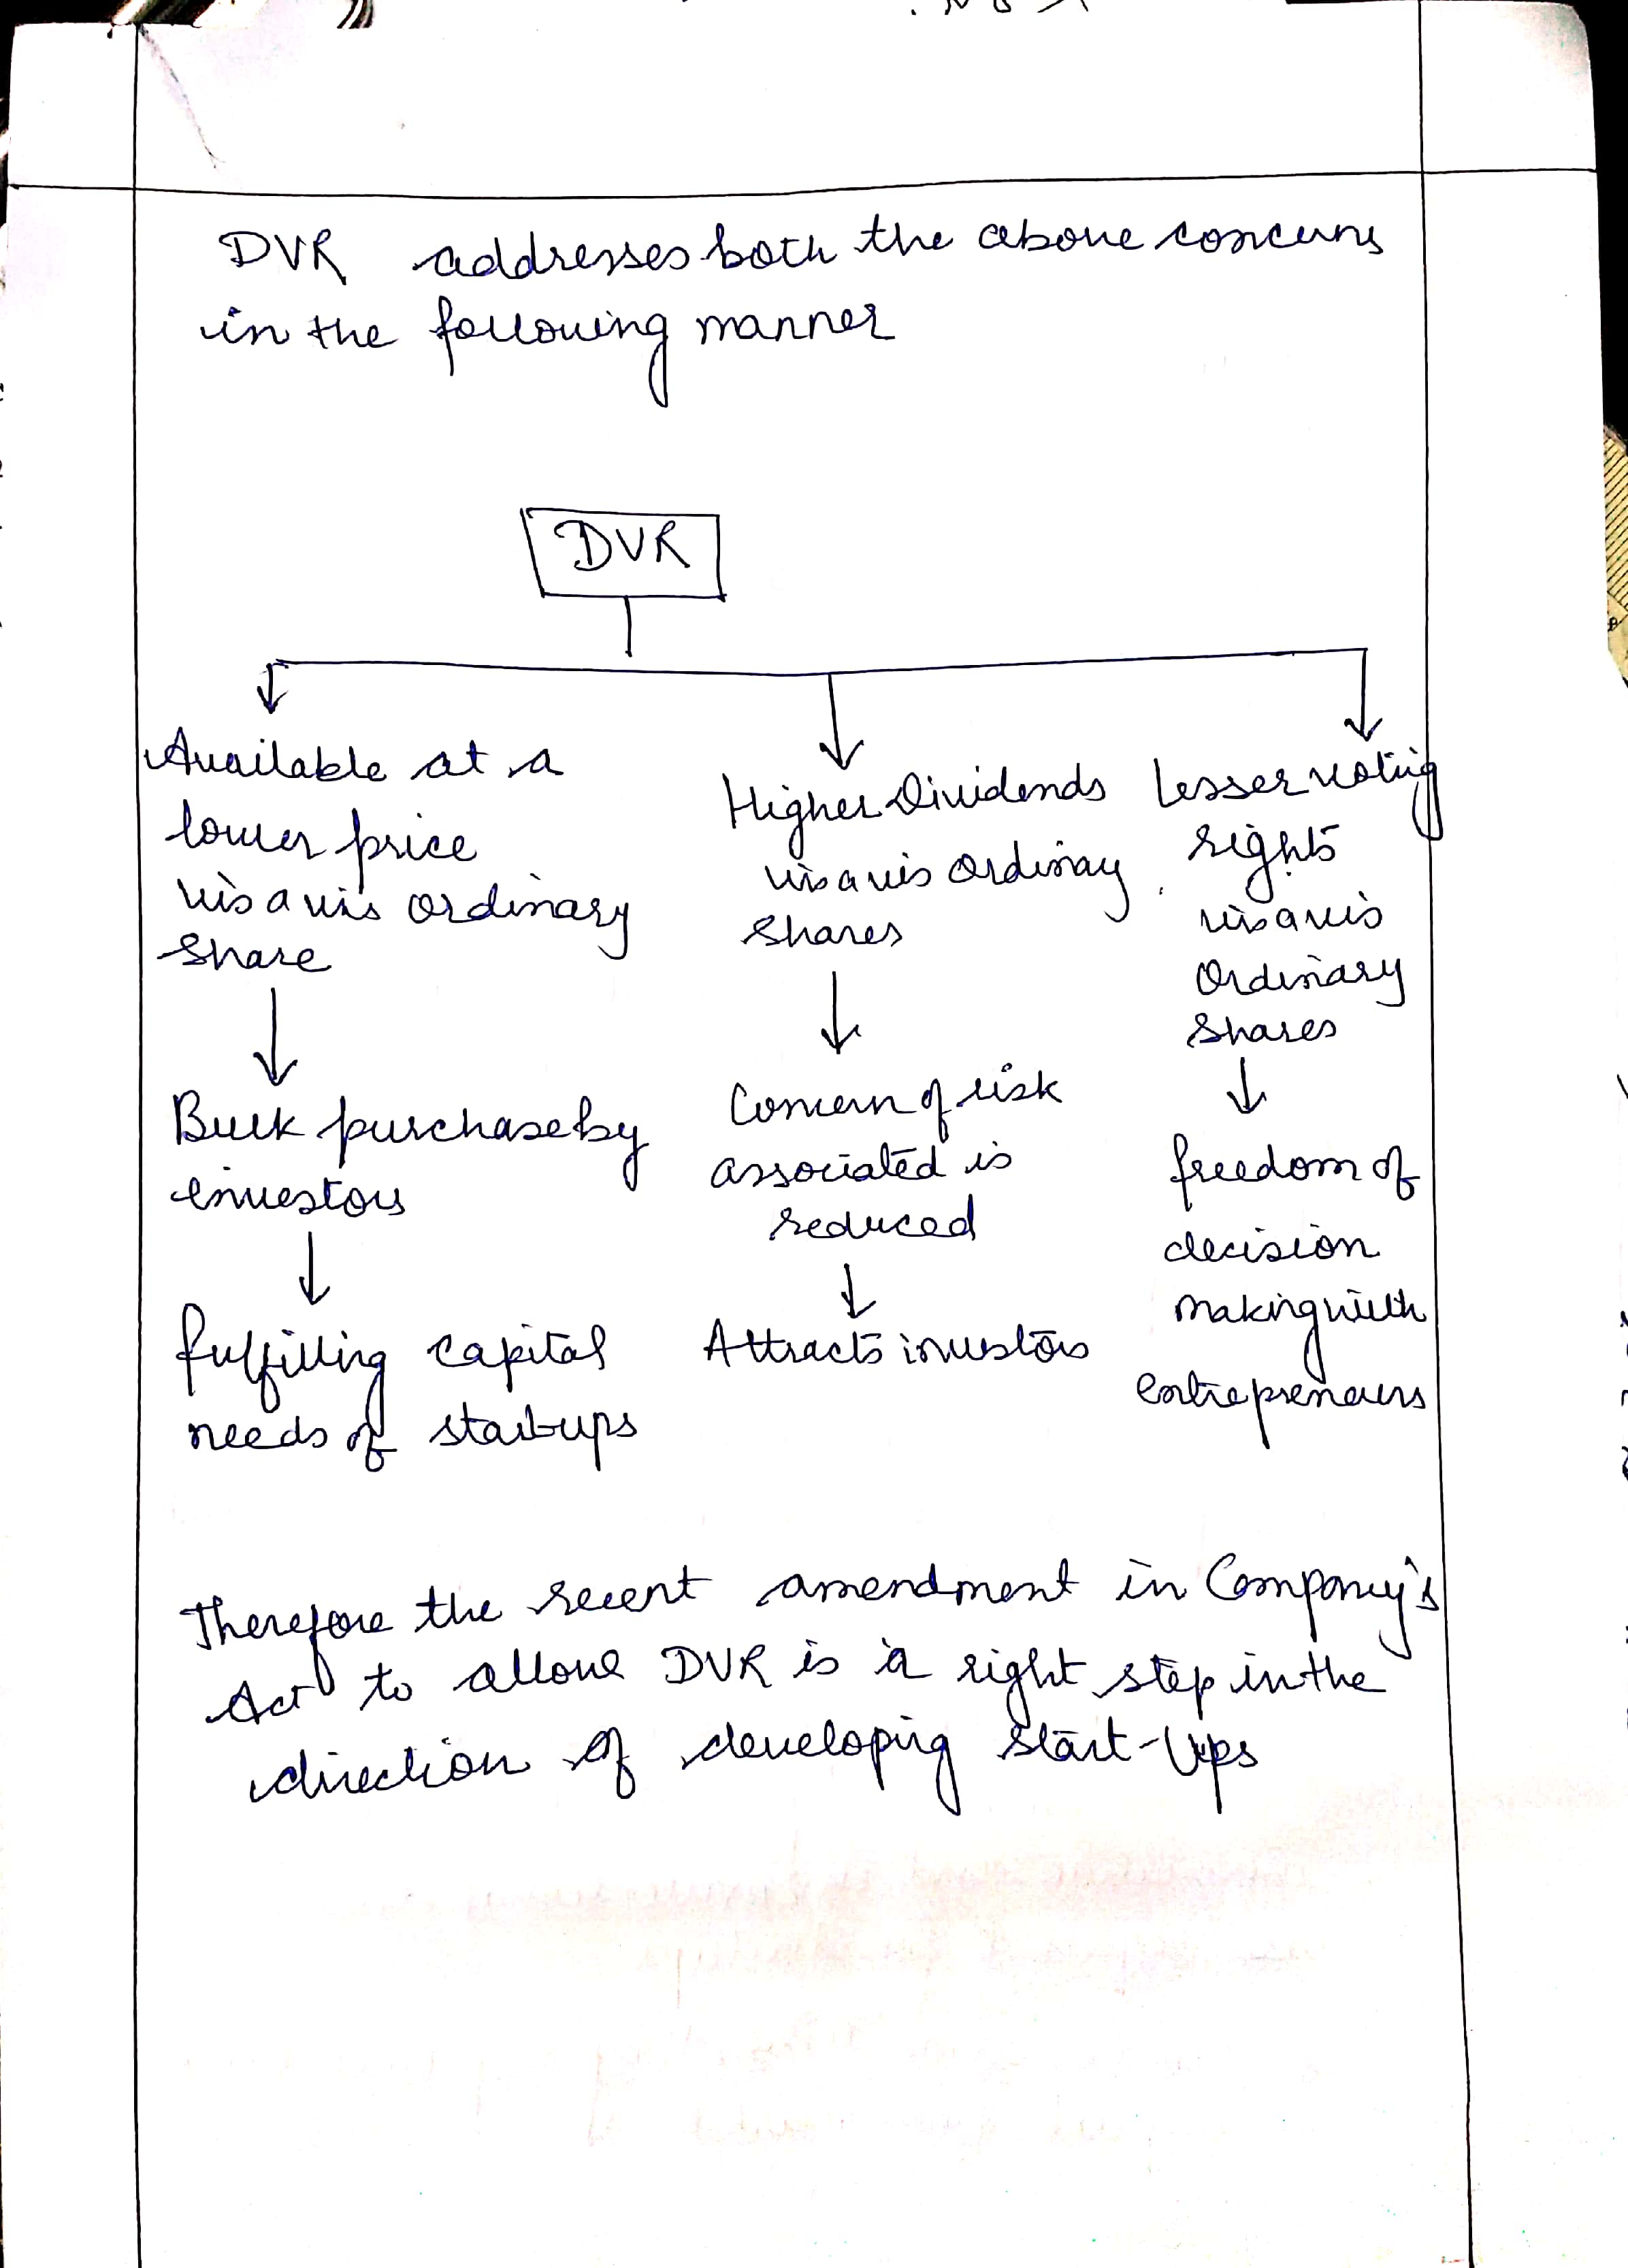 DVR addresses both the above concerns
in the following manner
DVR
Available at a
lower price
vis a vis ordinary
share
Bulk purchase by
investors
fulfilling capital
needs of start-ups
Higher Dividends
vis a vis ordinay
shares
Concern of risk
associated is
reduced
Attracts investors
Lesser voting
rights
vis a vis
ordinary
shares
freedom of
decision
making with
entrepreneurs
Therefore the recent amendment in Company's
Act to allow DVR is a right step in the
direction of developing Start-Ups